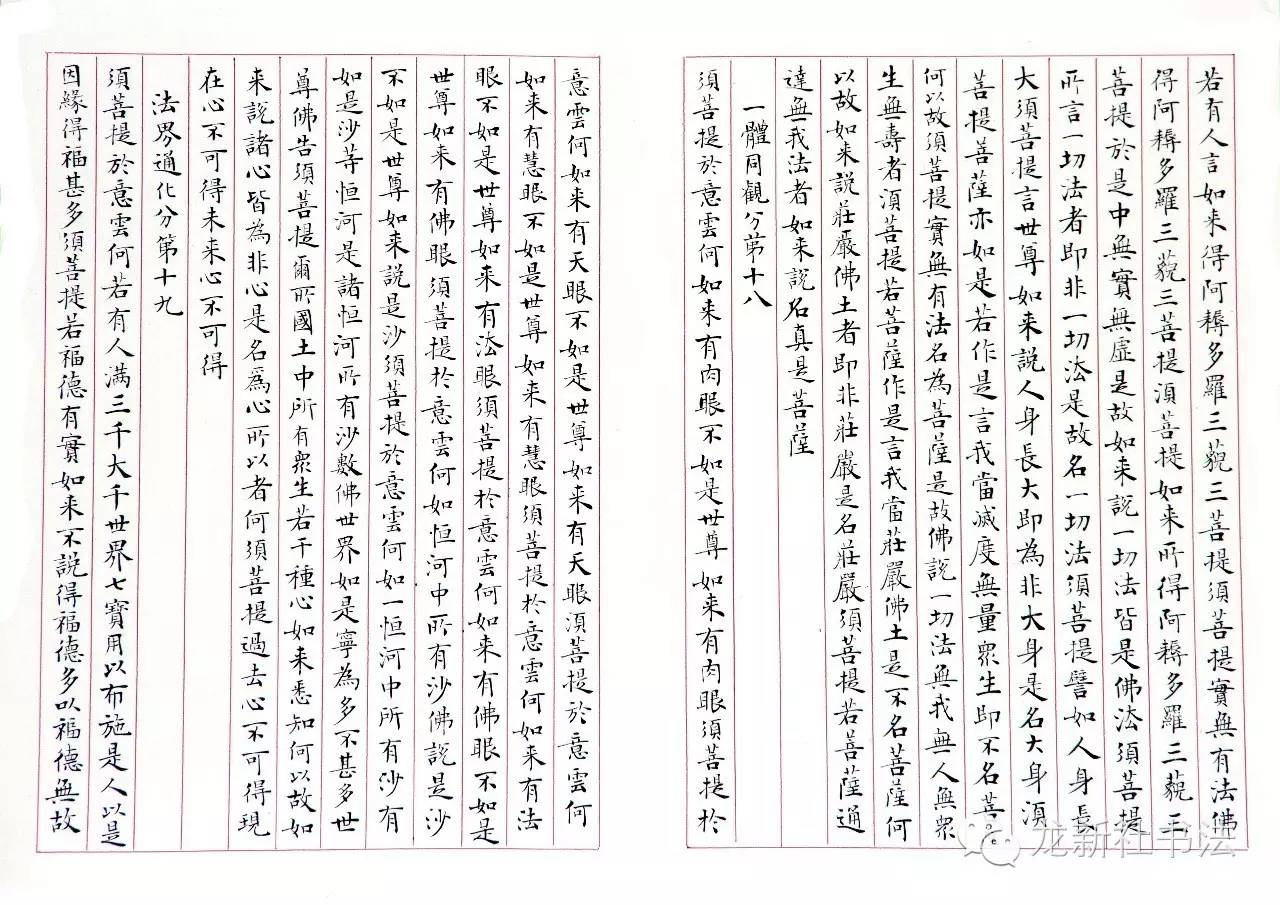 若有人言如来得阿耨多羅三藐三菩提須菩提實無有法佛
得阿耨多羅三藐三菩提須菩提如来所得阿耨多羅三藐三
菩提於是中無實無虛是故如来說一切法皆是佛法須菩提
所言一切法者即非一切法是故名一切法須菩提譬如人身長
大須菩提言世尊如来說人身長大即為非大身是名大身須
菩提菩薩亦如是若作是言我當滅度無量眾生即不名菩
何以故須菩提實無有法名為菩薩是故佛說一切法無我無人無眾
生無壽者須菩提若菩薩作是言我當莊嚴佛土是不名菩薩何
以故如来說莊嚴佛土者即非莊嚴是名莊嚴須菩提若菩薩通
達無我法者如来說名真是菩薩
一體同觀分第十八
須菩提於意雲何如来有肉眼不如是世尊如来有肉眼須菩提於
意雲何如来有天眼不如是世尊如来有天眼須菩提於意雲何
如来有慧眼不如是世尊如来有慧眼須菩提於意雲何如来有法
眼不如是世尊如来有法眼須菩提於意雲何如来有佛眼不如是
世尊如来有佛眼須菩提於意雲何如恒河中所有沙佛說是沙
不如是世尊如来說是沙須菩提於意雲何如一恒河中所有沙有
如是沙等恒河是諸恒河所有沙數佛世界如是寧為多不甚多世
尊佛告須菩提爾所國土中所有眾生若干種心如来悉知何以故如
来說諸心皆為非心是名為心所以者何須菩提過去心不可得現
在心不可得未来心不可得
法界通化分第十九
須菩提於意雲何若有人满三千大千世界七寶用以布施是人以是
因緣得福甚多須菩提若福德有實如来不說得福德多以福德無故
龙新社书法